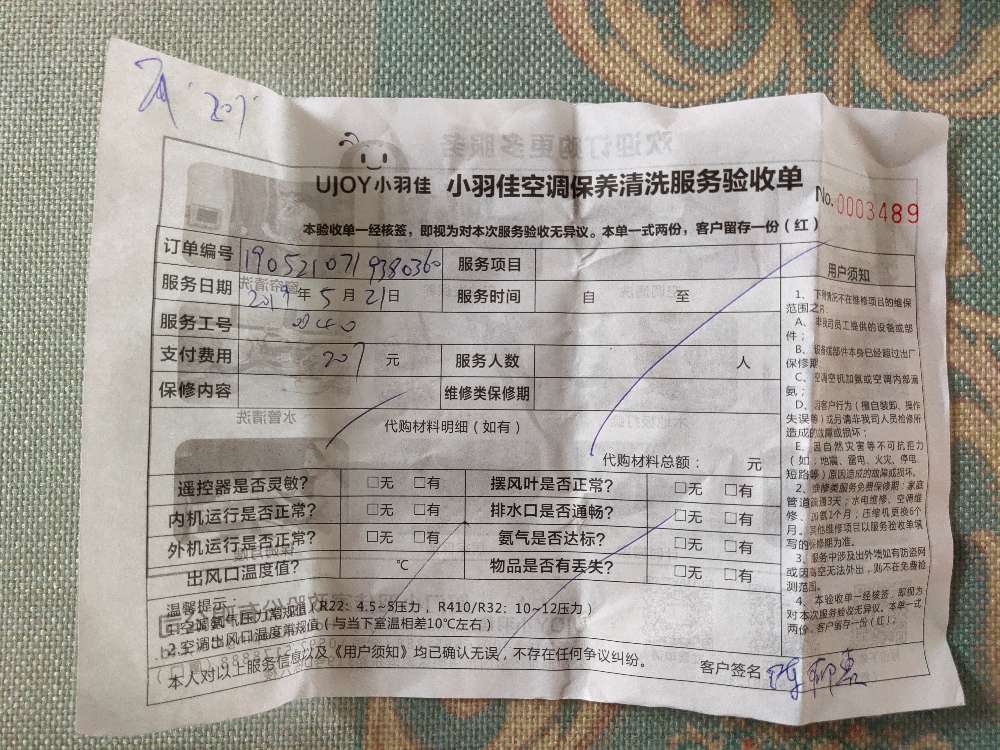 207
UJOY小羽佳 小羽佳空调保养清洗服务验收单
No.0003489
本验收单一经核签，即视为对本次服务验收无异议。本单一式两份，客户留存一份（红）
订单编号 1905210719380360 服务项目
服务日期 2019年5月21日 服务时间 自 至
服务工号 0040
支付费用 207 元 服务人数 人
保修内容 维修类保修期
代购材料明细（如有）
代购材料总额： 元
遥控器是否灵敏？ □无 □有 摆风叶是否正常？ □无 □有
内机运行是否正常？ □无 □有 排水口是否通畅？ □无 □有
外机运行是否正常？ □无 □有 氨气是否达标？ □无 □有
出风口温度值？ ℃ 物品是否有丢失？ □无 □有
温馨提示：
1.空调氨气压力常规值（R22：4.5~5压力，R410/R32：10~12压力）
2.空调出风口温度常规值（与当下室温相差10℃左右）
本人对以上服务信息以及《用户须知》均已确认无误，不存在任何争议纠纷。
客户签名
用户须知
1、下列情况不在维修项目的维保
范围之内
A、非我司员工提供的设备或部
件；
B、设备或部件本身已经超过出厂
保修期
C、空调空机加氨或空调内部漏
氨；
D、因客户行为（擅自装卸、操作
失误等）或另请非我司人员检修所
造成的故障或损坏；
E、因自然灾害等不可抗拒力
（如：地震、雷电、火灾、停电、
短路等）原因造成的故障或损坏。
2、维修类服务免费保修期：家庭
管道疏通3天；水电维修、空调维
修、加氨1个月；压缩机更换6个
月。其他维修项目以服务验收单填
写的保修期为准。
3、服务中涉及出外墙如有防盗网
或因高空无法外出，则不在免费检
测范围。
4、本验收单一经核签，即视为
对本次服务验收无异议。本单一式
两份，客户留存一份（红）。
水管清洗
欢迎订购更多服务